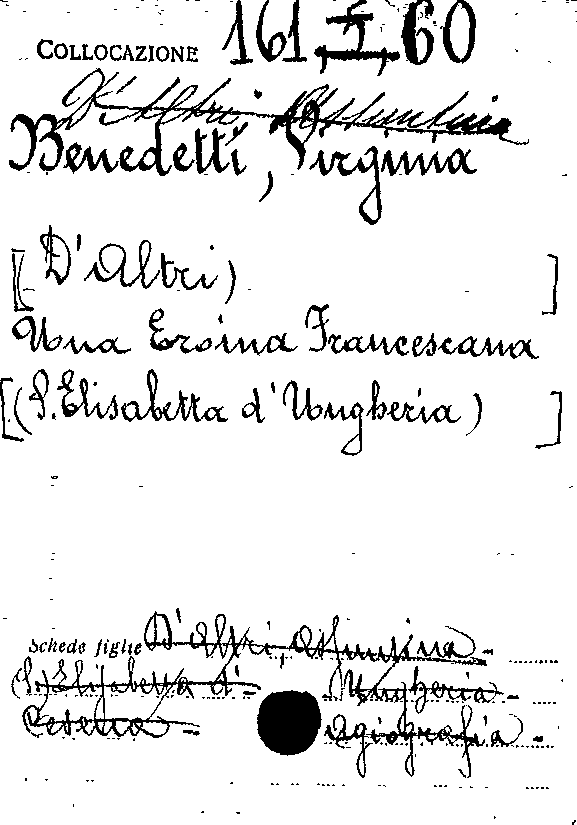 COLLOCAZIONE 161, 5, 60
D'Altri Assuntina
Benedetti, Virginia
[D'Altri) ]
Una Eroina Francescana
[(S. Elisabetta d'Ungheria) ]
Schede figlie D'Altri, Assuntina -
(S.) Elisabetta d' - Ungheria -
Cesena - Agiografia -